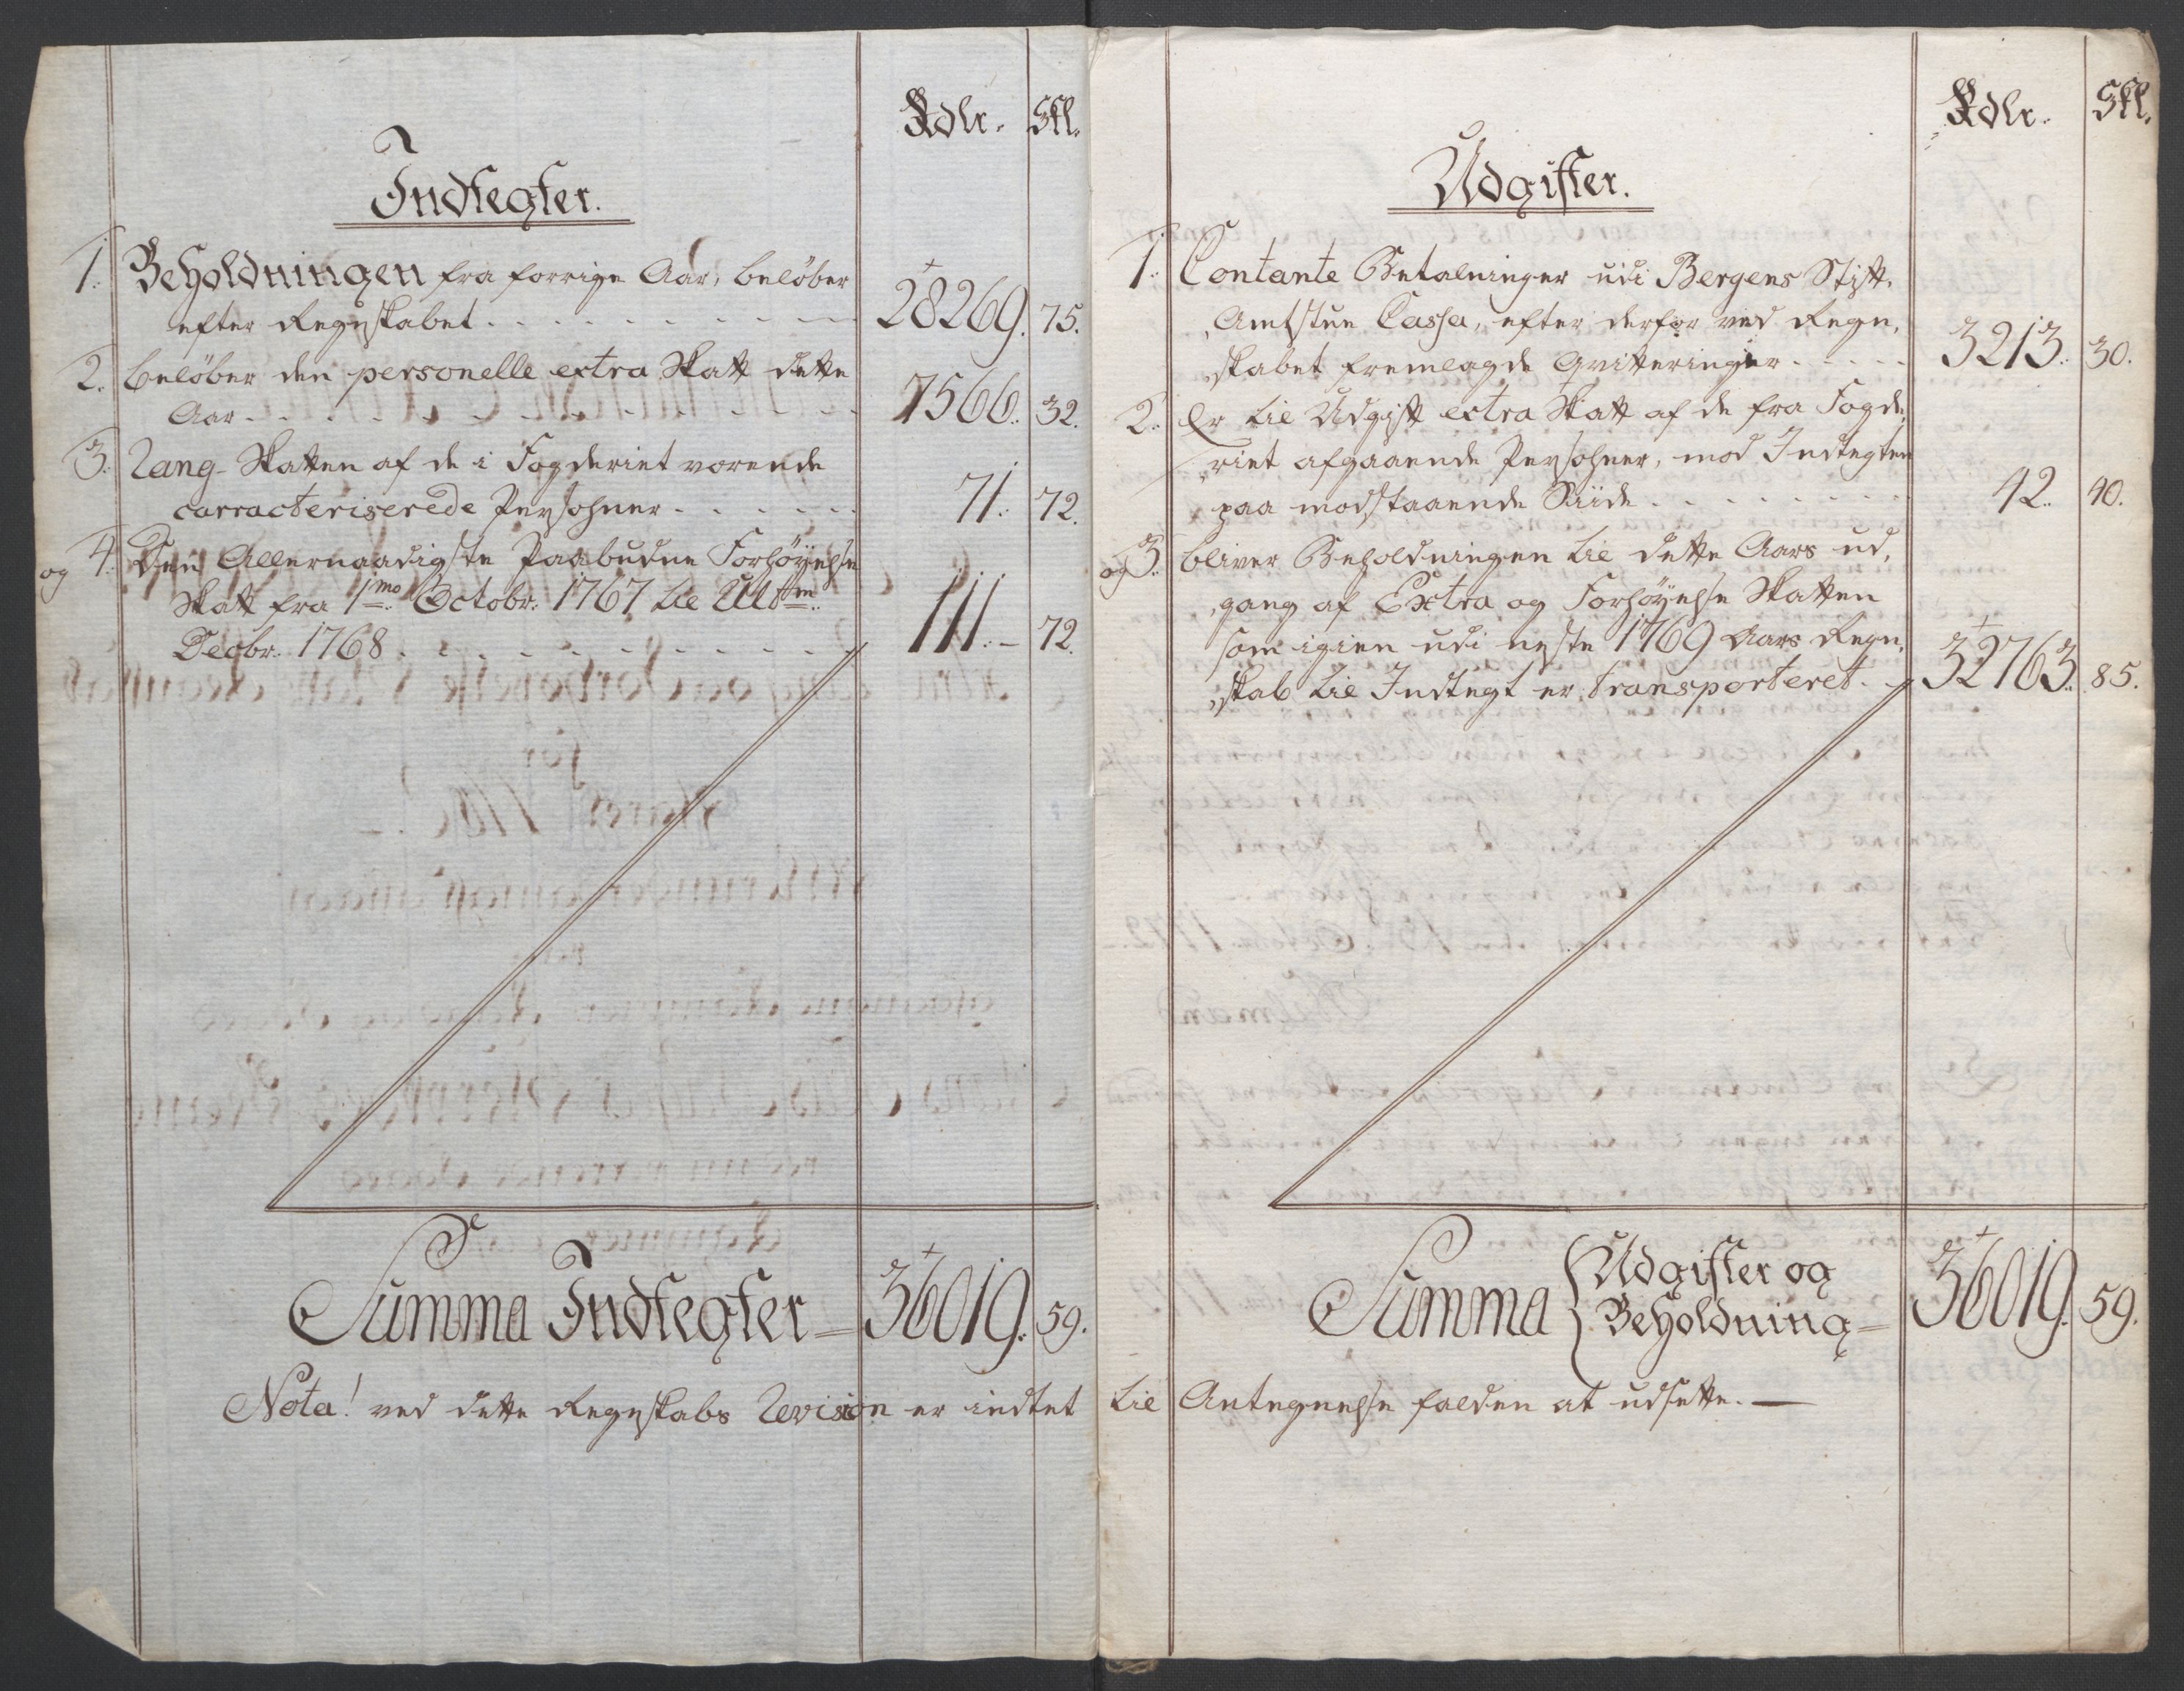 Rdlr. Skl.
Indtegter.
1. Beholdningen fra forrige Aar, beløber
efter Regnskabet . . . . . . . . 28269. 75.
2. beløber den personelle extra Skatt dette
Aar . . . . . . . . . . 7566. 32.
3. Rang-Skatten af de i Fogderiet værende
carracteriserede Persohner . . . . . . 71. 72.
og 4. Den Allernaadigste Paabudne Forhøyelse
Skatt fra 1mo Octobr. 1767 til Ultm.
Decbr. 1768 . . . . . . . . . 111. - 72.
Summa Indtegter = 36019. 59.
Rdlr. Skl.
Udgifter.
1. Contante Betalninger udi Bergens Stift,
Amtstue Cassa, efter derfor ved Regn,
skabet fremlagde Qvitteringer . . . . . 3213. 30.
2. Er til Udgift extra Skatt af de fra Fogde,
riet afgaaende Persohner, mod Indtegten
paa modstaaende Siide . . . . . . . . 42. 40.
og 3. bliver Beholdningen til dette Aars ud,
gang af Extra og Forhøyelse Skatten
som igien udi neste 1769 Aars Regn,
skab til Indtegt er transporteret. - 32763. 85.
Summa Udgifter og
Beholdning = 36019. 59.
Nota! ved dette Regnskabs Revision er indtet til Antegnelse falden at udsette. —